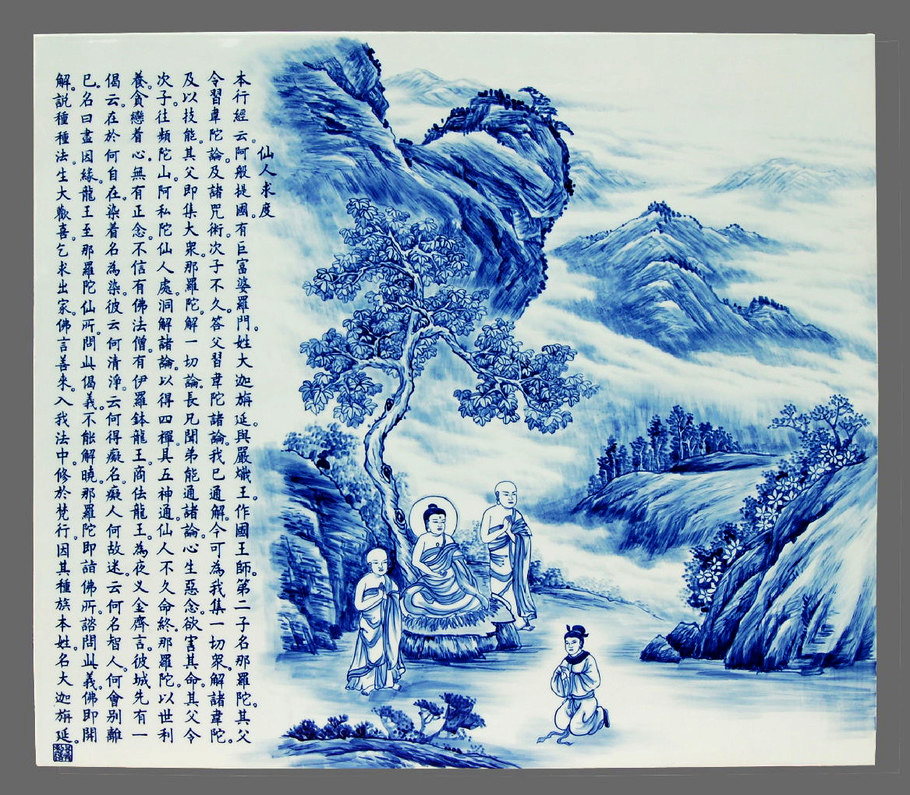 仙人求度
本行經云。阿般提國。有巨富婆羅門。姓大迦旃延。與嚴熾王。作國王師。第二子名那羅陀。其父
令習韋陀論。及諸咒術。次子不久。答父習韋陀諸論。我已通解。今可為我集一切眾。解諸韋陀。
及以技能。其父即集大眾。那羅陀。解一切論。長兄聞弟能通諸論。心生惡念。欲害其命。其父令
次子往頻陀山。阿私陀仙人處。洞解諸論。以得四禪。具五神通。仙人不久命終。那羅陀。以世利
養。貪戀着心。無有正念。不信有佛法僧。有伊羅鉢龍王。商佉龍王。為夜叉金齊言。彼城先有一
偈。云在於何自在。染着名為染。彼云何清淨。云何得癡名。癡人何故迷。云何名智人。何會别離
已。名曰盡因緣。龍王至那羅陀仙所。問此偈義。不能解曉。那羅陀即詣佛所。諮問此義。佛即開
解。說種種法。生大歡喜。乞求出家。佛言善來。入我法中。修於梵行。因其種族本姓。名大迦旃延。